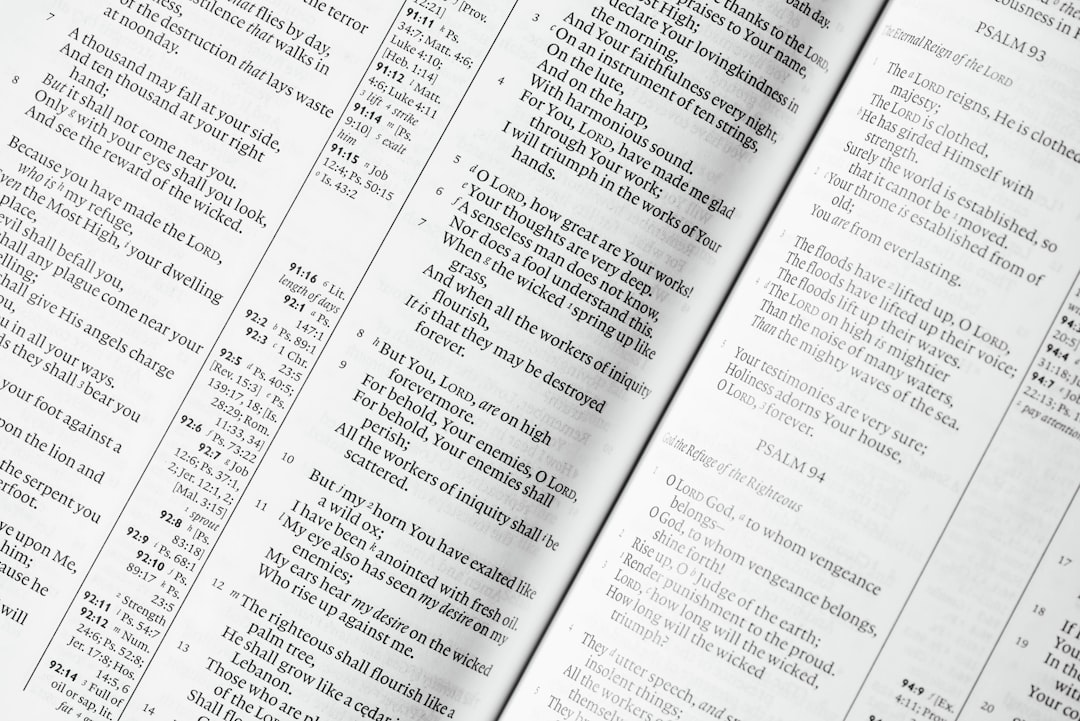 the terror
what flies by day,
pestilence that walks in
of the destruction that lays waste
at noonday.
7 A thousand may fall at your side,
And ten thousand at your right
hand;
8 But it shall not come near you.
Only g with your eyes shall you look,
And see the reward of the wicked.
Because you have made the LORD,
who is h my refuge,
Even the Most High, i your dwelling
place,
evil shall befall you,
shall any plague come near your
elling;
shall give His angels charge
ou,
u in all your ways.
ds they shall 3 bear you
your foot against a
pon the lion and
the serpent you
erfoot.
ve upon Me,
him;
cause he
will
12:21]
91:11 h Ps.
34:7; Matt. 4:6;
Luke 4:10;
[Heb. 1:14]
91:12 i Matt.
4:6; Luke 4:11
3 lift 4 strike
91:14 [Ps.
9:10] 5 exalt
him
91:15 n Job
12:4; Ps. 50:15
o Is. 43:2
91:16 6 Lit.
length of days
92:1 a Ps.
147:1
92:2 b Ps. 89:1
92:3 c 1 Chr.
23:5
92:5 d Ps. 40:5;
[Rev. 15:3] e Ps.
139:17, 18; [Is.
28:29; Rom.
11:33, 34]
92:6 f Ps. 73:22
92:7 g Job
12:6; Ps. 37:1,
2; Jer. 12:1, 2;
[Mal. 3:15]
1 sprout
92:8 h [Ps.
83:18]
92:9 i Ps. 68:1
92:10 j Ps.
89:17 k Ps.
23:5
2 Strength
92:11 l Ps. 54:7
92:12 m Num.
24:6; Ps. 52:8;
Jer. 17:8; Hos.
14:5, 6
92:14 3 Full of
oil or sap, lit.
fat
bath day.
thanks to the LORD,
praises to Your name,
Most High;
declare Your lovingkindness in
the morning,
And Your faithfulness every night,
3 c On an instrument of ten strings,
On the lute,
And on the harp,
With harmonious sound.
4 For You, LORD, have made me glad
through Your work;
I will triumph in the works of Your
hands.
5 d O LORD, how great are Your works!
e Your thoughts are very deep.
6 f A senseless man does not know,
Nor does a fool understand this.
7 When g the wicked 1 spring up like
grass,
And when all the workers of iniquity
flourish,
It is that they may be destroyed
forever.
8 h But You, LORD, are on high
forevermore.
9 For behold, Your enemies, O LORD,
For behold, Your enemies shall
perish;
All the workers of iniquity shall i be
scattered.
10 But j my 2 horn You have exalted like
a wild ox;
I have been k anointed with fresh oil.
11 l My eye also has seen my desire on my
enemies;
My ears hear my desire on the wicked
Who rise up against me.
12 m The righteous shall flourish like a
palm tree,
He shall grow like a cedar in
Lebanon.
13 Those who are
of the LORD
Shall
14
PSALM 93
The Eternal Reign of the LORD
1 The a LORD reigns, He is clothed
majesty;
The LORD is clothed,
b He has girded Himself with
strength.
Surely the world is established, so
that it cannot be 1 moved.
2 c Your throne is established from of
old;
You are from everlasting.
3 The floods have 2 lifted up, O LORD,
The floods have lifted up their voice;
The floods lift up their waves.
4 d The LORD on high is mightier
Than the noise of many waters,
Than the mighty waves of the sea.
5 Your testimonies are very sure;
Holiness adorns Your house,
O LORD, 3 forever.
PSALM 94
God the Refuge of the Righteous
1 O LORD God, a to whom vengeance
belongs—
O God, to whom vengeance belongs,
shine forth!
2 Rise up, O b Judge of the earth;
Render punishment to the proud.
3 LORD, c how long will the wicked,
How long will the wicked
triumph?
4 They d utter speech, and
insolent things;
All the workers
themselves
5 They
94:4
31:18;
94:7 Job
22:13; Ps.
2 pay attention
94:9 f [Ex.
4:11; Prov.
17
18 If
You
19 In th
with
20 Your co